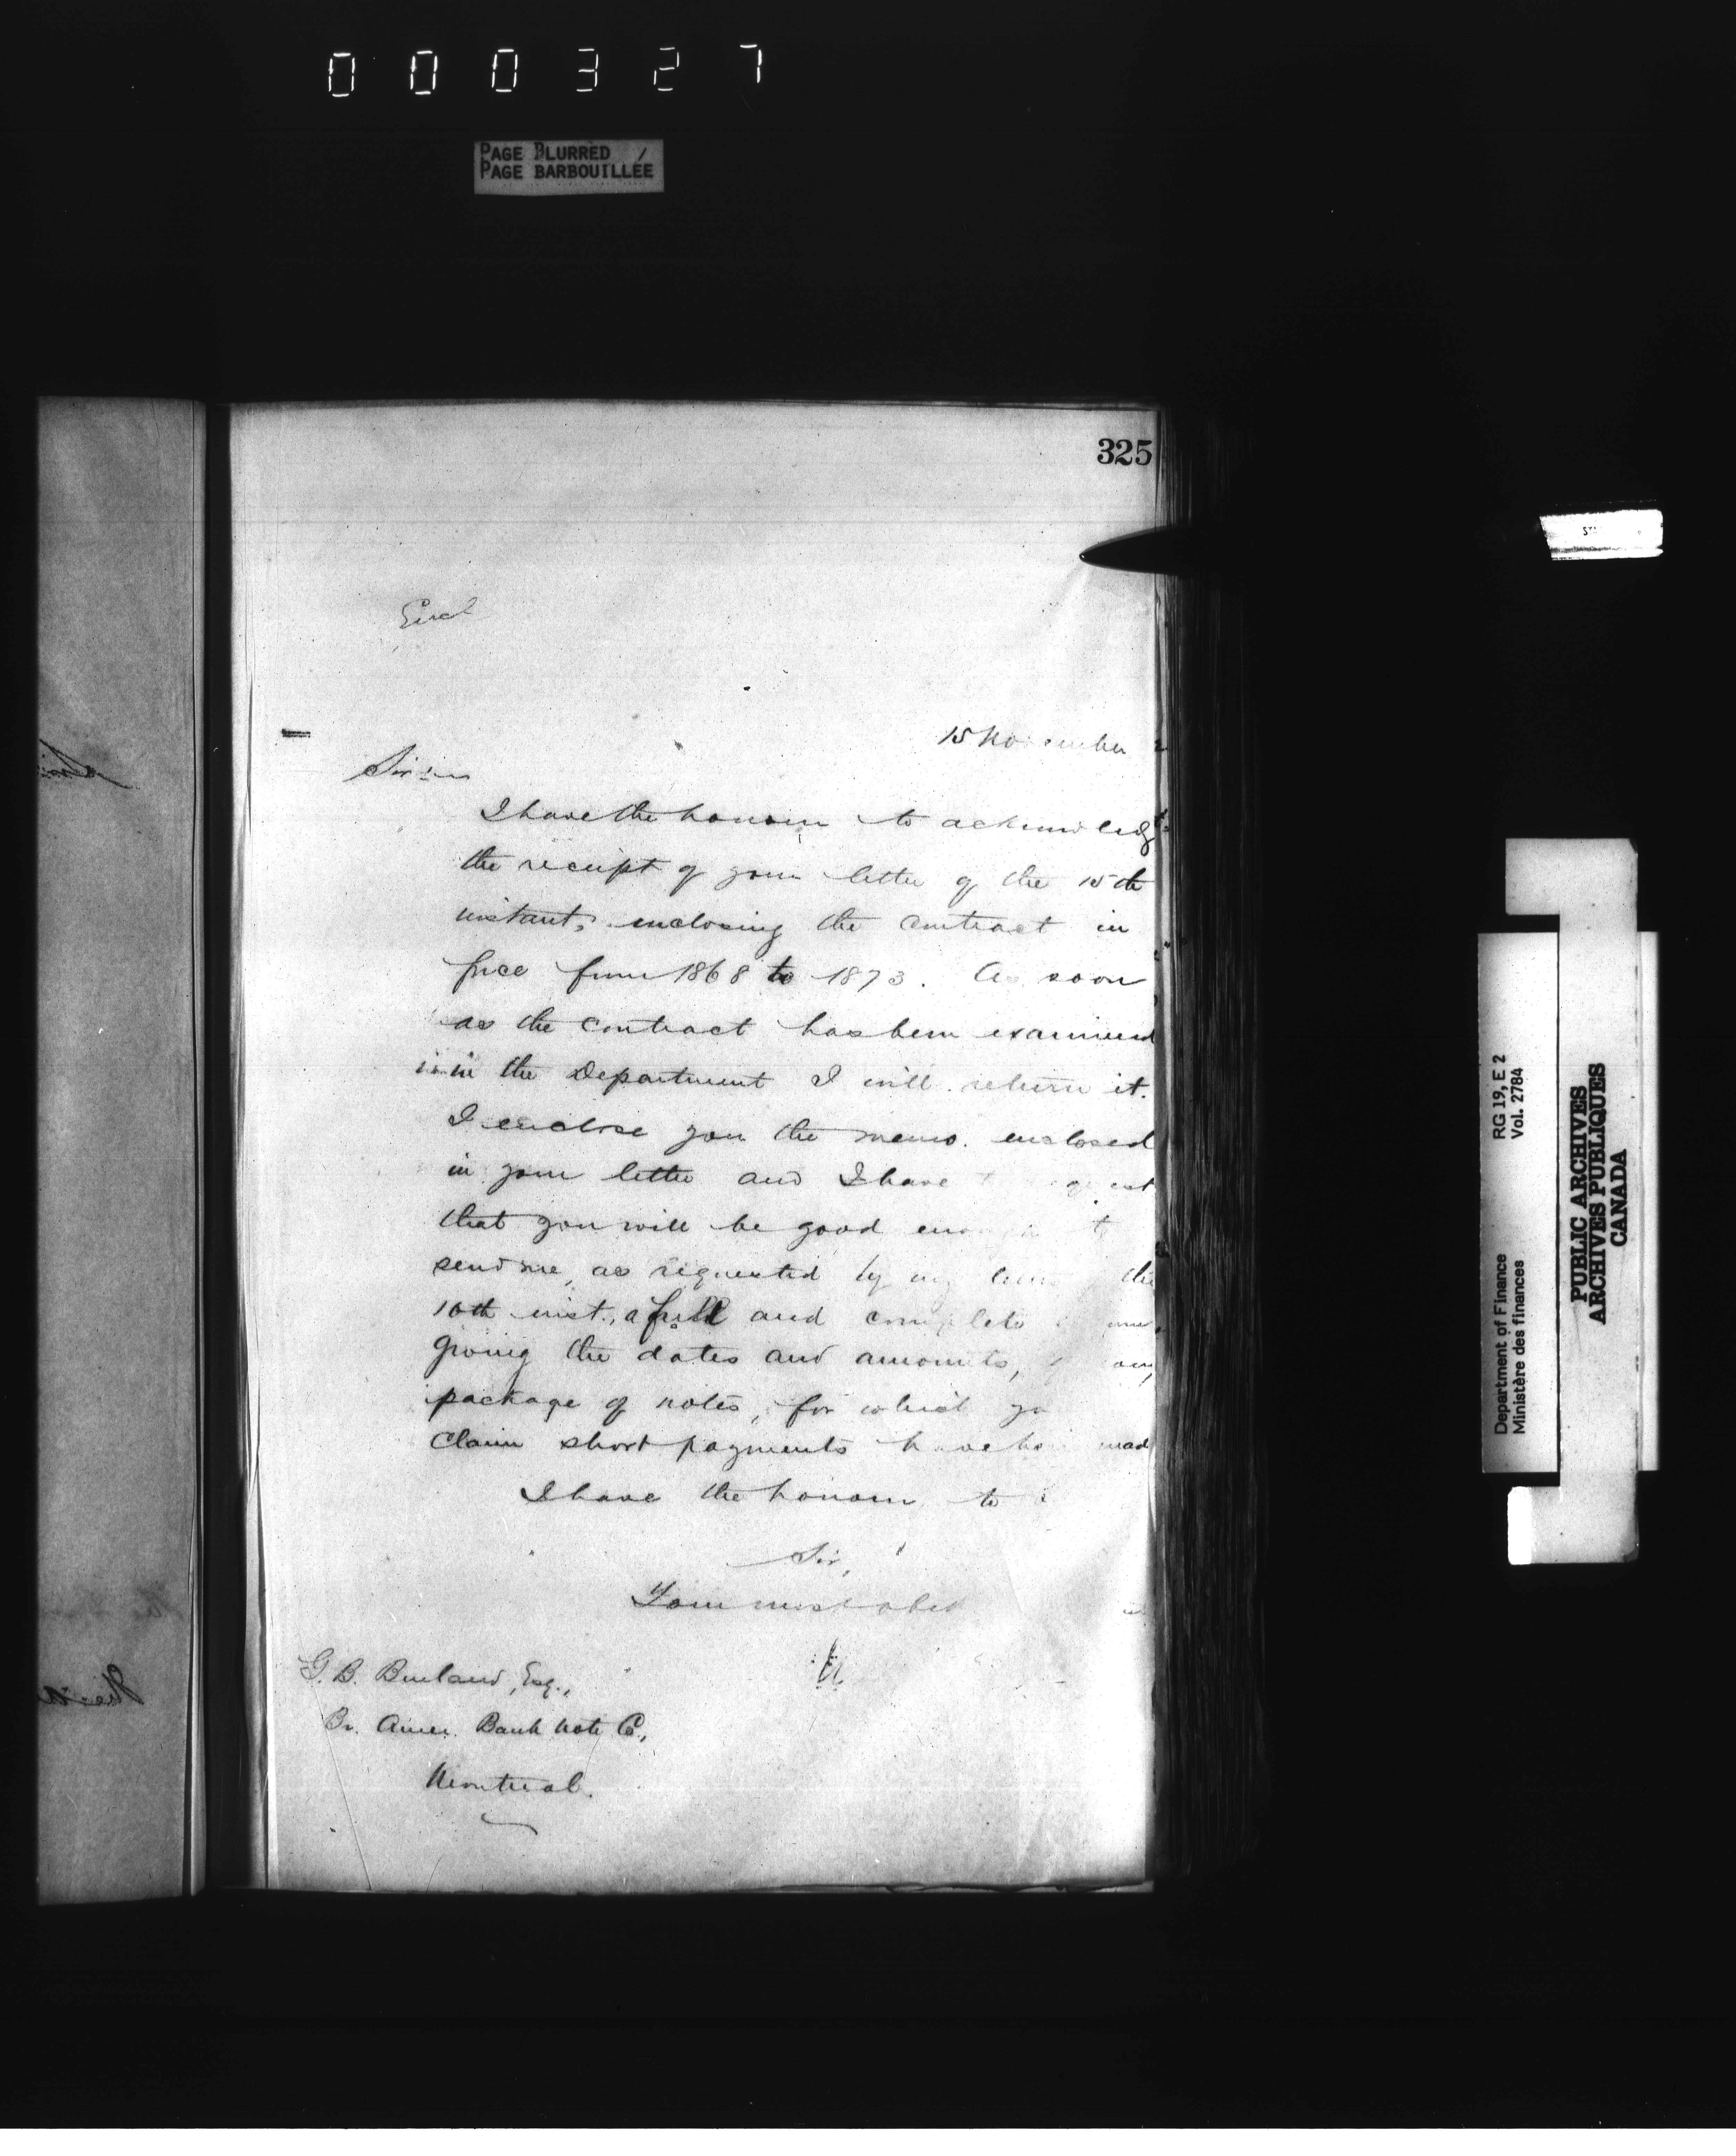 000327
PAGE BLURRED
PAGE BARBOUILLÉE
325
Encl
15 November
Sir:
I have the honour to acknowledge
the receipt of your letter of the 15th
instant, enclosing the contract in
force from 1868 to 1873. As soon
as the contract has been examined
in the Department I will return it.
I enclose you the memo. enclosed
in your letter and I have
that you will be good enough to
send me, as requested by my the
10th inst., a full and complete
giving the dates and amounts,
package of notes, for which yo
claim short payments have been mad
I have the honour to
Sir,
Your most obed
G. B. Burland, Esq.,
Br. Amer. Bank Note Co.,
Montreal.
Department of Finance RG 19, E 2
Ministère des finances Vol. 2784
PUBLIC ARCHIVES
ARCHIVES PUBLIQUES
CANADA